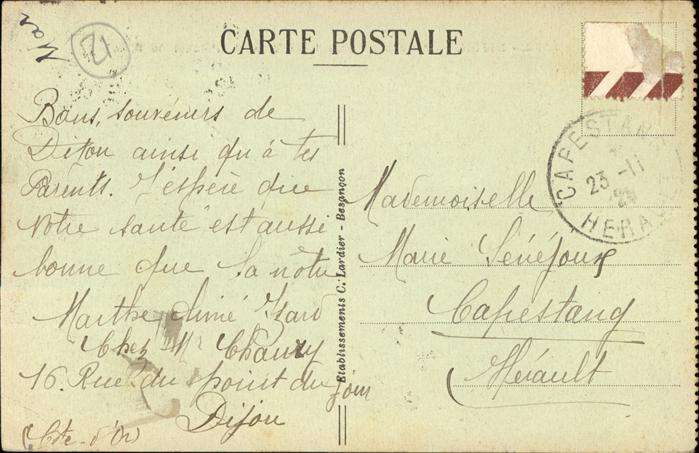 21
CARTE POSTALE
Bons souvenirs de
Dijon ainsi qu'à tes
Parents. J'espère que
Votre santé est aussi
bonne que la nôtre
Marthe Aimé Izard
Chez M Chaury
16 Rue du point du jour
Dijon
(Côte-d'Or)
Etablissements C. Lardier - Besançon
CAPESTAN
23 -11
HERA
Mademoiselle
Marie Sénéjoux
Capestang
Hérault